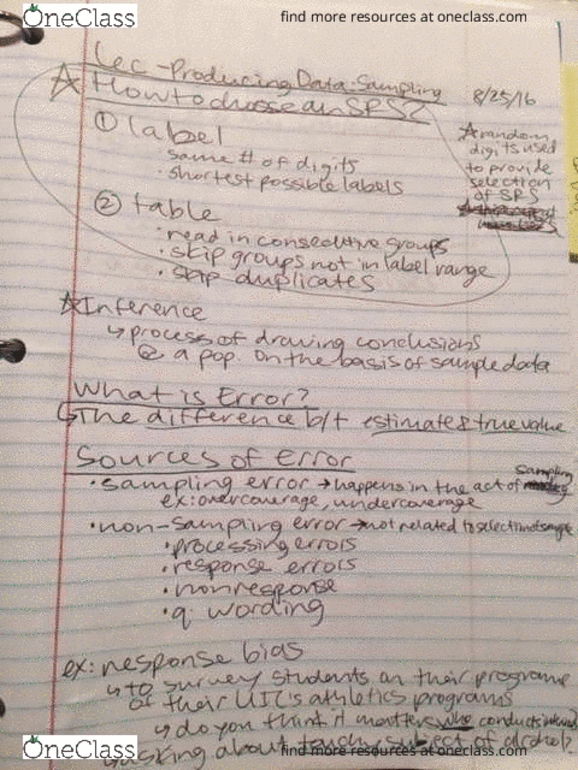 OneClass
find more resources at oneclass.com
Lec - Producing Data: Sampling
8/25/16
☆ How to choose an SRS?
① label
· same # of digits
· shortest possible labels
☆ random
digits used
to provide
selection
of SRS
② table
· read in consecutive groups
· skip groups not in label range
· skip duplicates
☆ Inference
↳ process of drawing conclusions
@ a pop. on the basis of sample data
What is Error?
↳ The difference b/t estimate & true value
Sources of Error
· sampling error → happens in the act of sampling
ex: overcoverage, undercoverage
· non-sampling error → not related to selection of sample
· processing errors
· response errors
· nonresponse
· q. wording
ex: response bias
↳ to survey students on their programs
of their UIC's athletics programs
↳ do you think it matters who conducts
↳ asking about touchy subject of alcohol?
OneClass
find more resources at oneclass.com